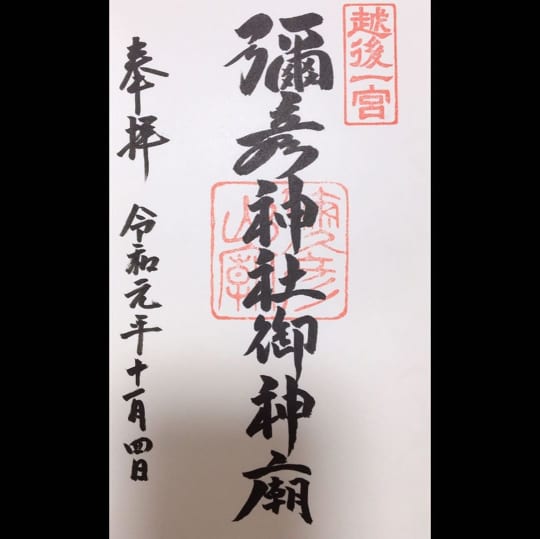 越後一宮
彌彦神社御神廟
奉拝
令和元年十一月四日